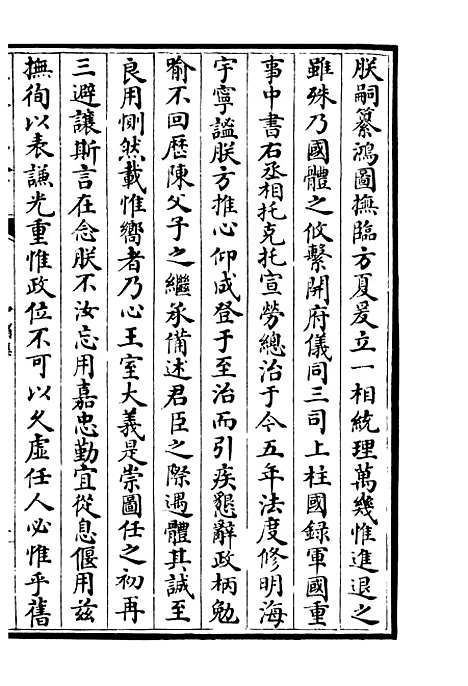 朕嗣纂鴻圖撫臨方夏爰立一相統理萬幾惟進退之
雖殊乃國體之攸繫開府儀同三司上柱國録軍國重
事中書右丞相托克托宣勞總治于今五年法度修明海
宇寧謐朕方推心仰成登于至治而引疾懇辭政柄勉
喻不回歷陳父子之繼承備述君臣之際遇體其誠至
良用惻然載惟嚮者乃心王室大義是崇圖任之初再
三避讓斯言在念朕不汝忘用嘉忠勤宜從息偃用兹
撫徇以表謙光重惟政位不可以久虛任人必惟乎舊